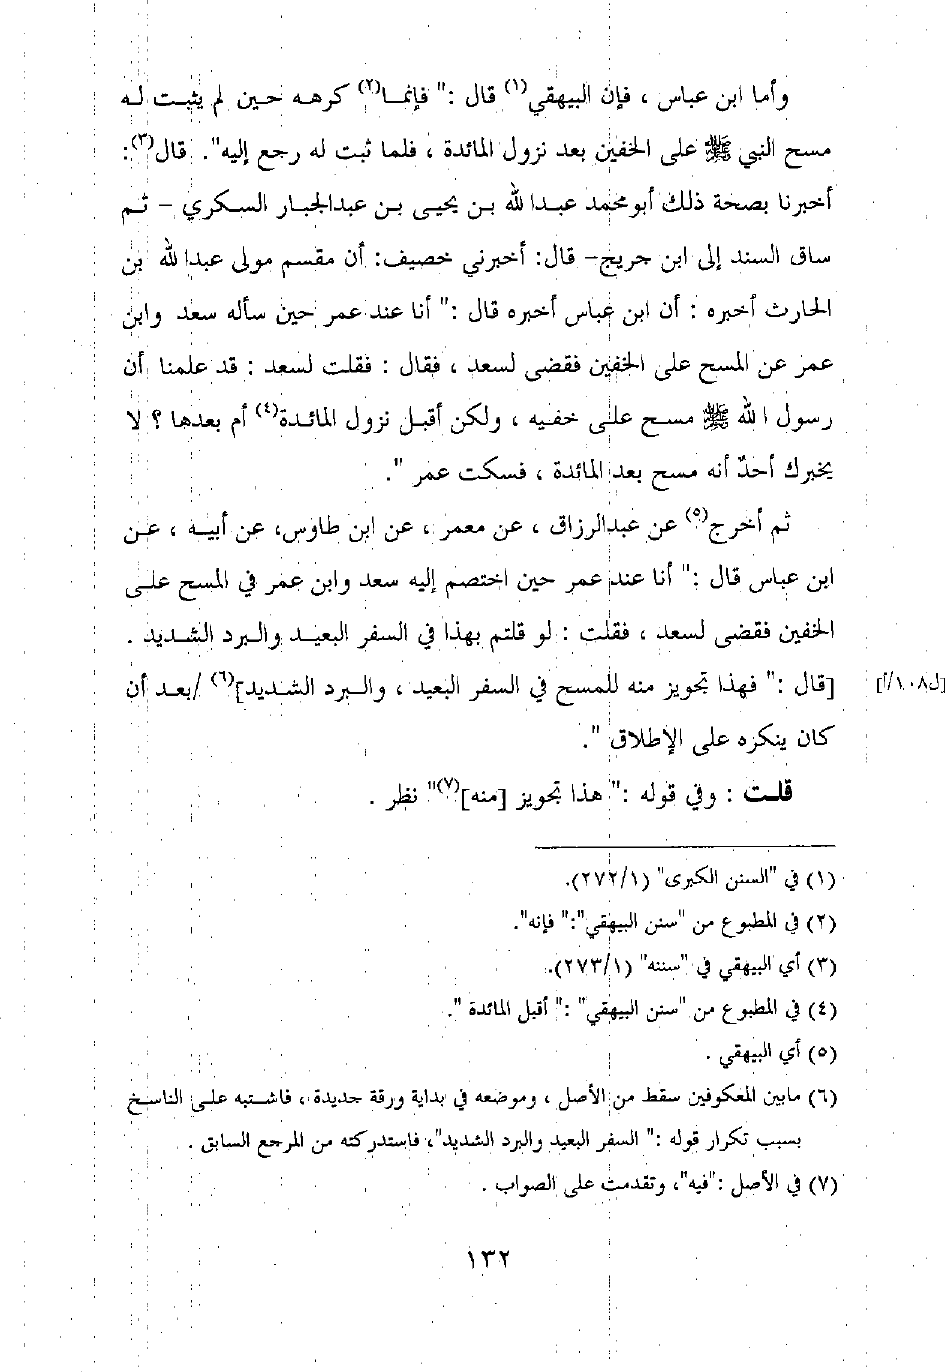 وأما ابن عباس ، فإن البيهقي(١) قال :" فإنما(٢) كرهه حين لم يثبت له
مسح النبي ﷺ على الخفين بعد نزول المائدة ، فلما ثبت له رجع إليه". قال(٣):
أخبرنا بصحة ذلك أبومحمد عبدالله بن يحيى بن عبدالجبار السكري – ثم
ساق السند إلى ابن جريج– قال: أخبرني خصيف: أن مقسم مولى عبدالله بن
الحارث أخبره : أن ابن عباس أخبره قال :" أنا عند عمر حين سأله سعد وابن
عمر عن المسح على الخفين فقضى لسعد ، فقال : فقلت لسعد : قد علمنا أن
رسول الله ﷺ مسح على خفيه ، ولكن أقبل نزول المائدة(٤) أم بعدها ؟ لا
يخبرك أحدٌ أنه مسح بعد المائدة ، فسكت عمر ".
ثم أخرج(٥) عن عبدالرزاق ، عن معمر ، عن ابن طاوس، عن أبيه ، عن
ابن عباس قال :" أنا عند عمر حين اختصم إليه سعد وابن عمر في المسح على
الخفين فقضى لسعد ، فقلت : لو قلتم بهذا في السفر البعيد والبرد الشديد .
[قال :" فهذا تجويز منه للمسح في السفر البعيد ، والبرد الشديد](٦) /بعد أن [ل١٠٨/أ]
كان ينكره على الإطلاق ".
قلت : وفي قوله :" هذا تجويز [منه](٧)" نظر .
(١) في "السنن الكبرى" (٢٧٢/١).
(٢) في المطبوع من "سنن البيهقي":" فإنه".
(٣) أي البيهقي في "سننه" (٢٧٣/١).
(٤) في المطبوع من "سنن البيهقي" :" أقبل المائدة ".
(٥) أي البيهقي .
(٦) مابين المعكوفين سقط من الأصل ، وموضعه في بداية ورقة جديدة ، فاشتبه على الناسخ
بسبب تكرار قوله :" السفر البعيد والبرد الشديد"، فاستدركته من المرجع السابق .
(٧) في الأصل :"فيه"، وتقدمت على الصواب .
١٣٢